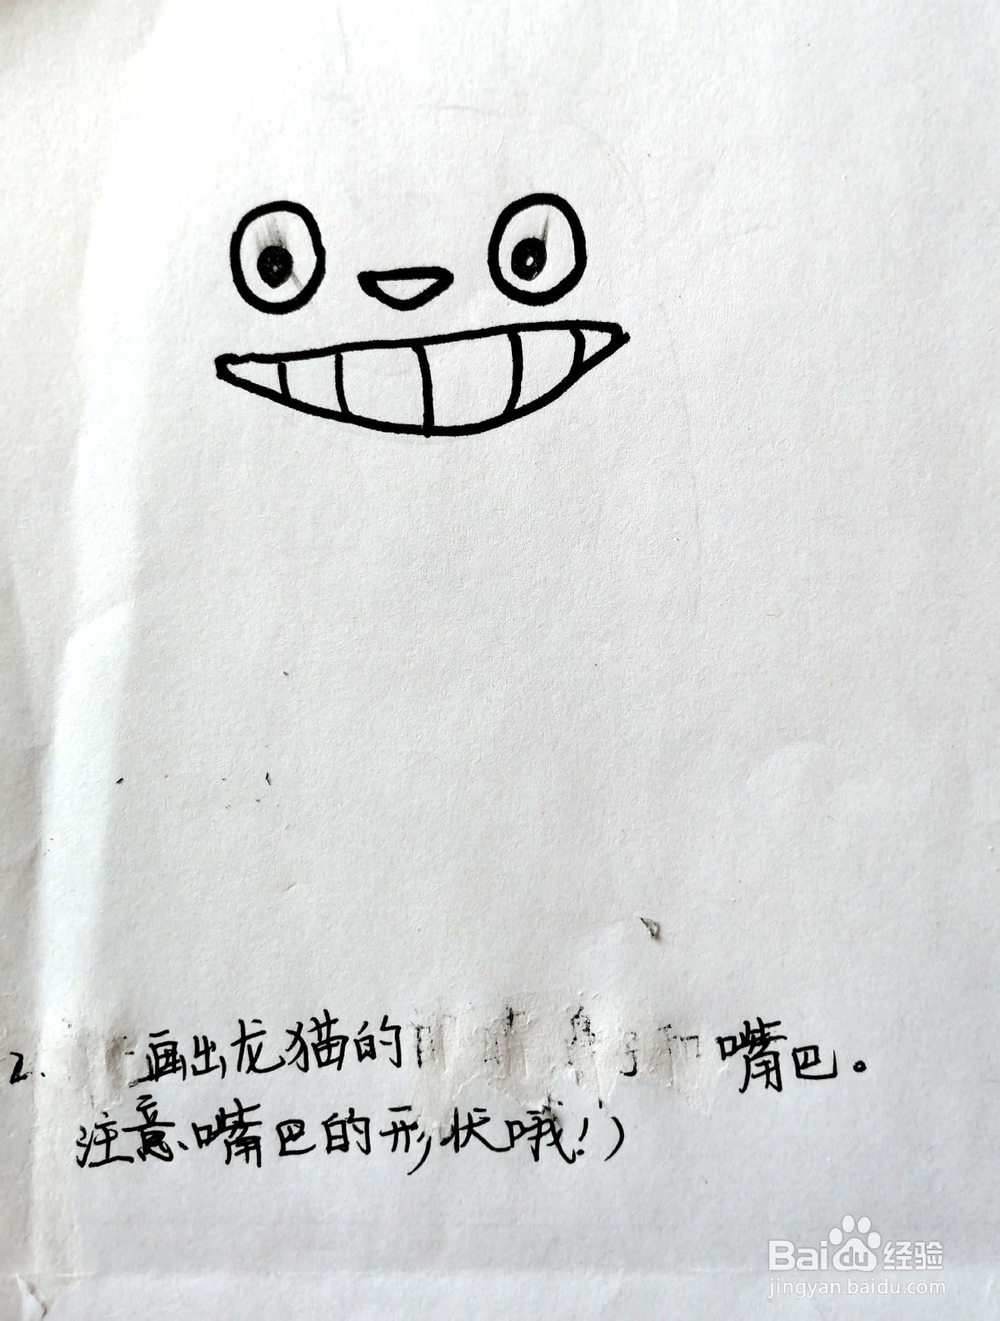 2. 画出龙猫的 嘴巴。
注意嘴巴的形状哦!)
Bai du 经验
jingyan.baidu.com